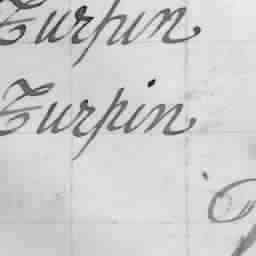 Turpin
Turpin